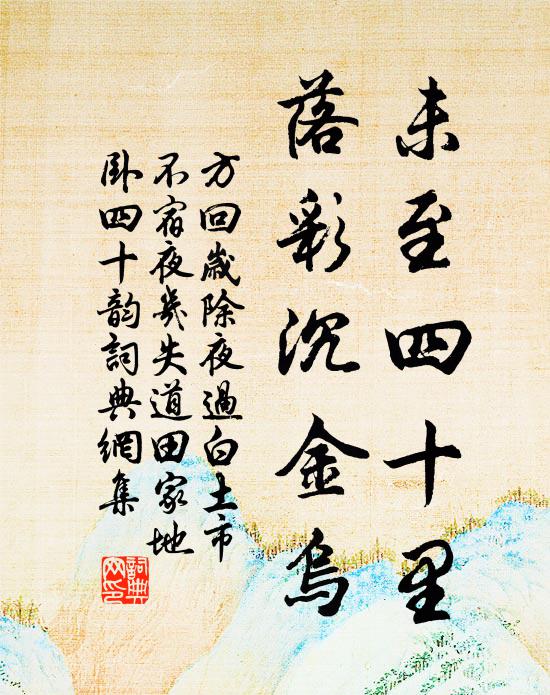 未至四十里
落彩沉金烏
方回歲除夜過白土市
不宿夜幾失道田家地
臥四十韵詞典網集
詞典
网印